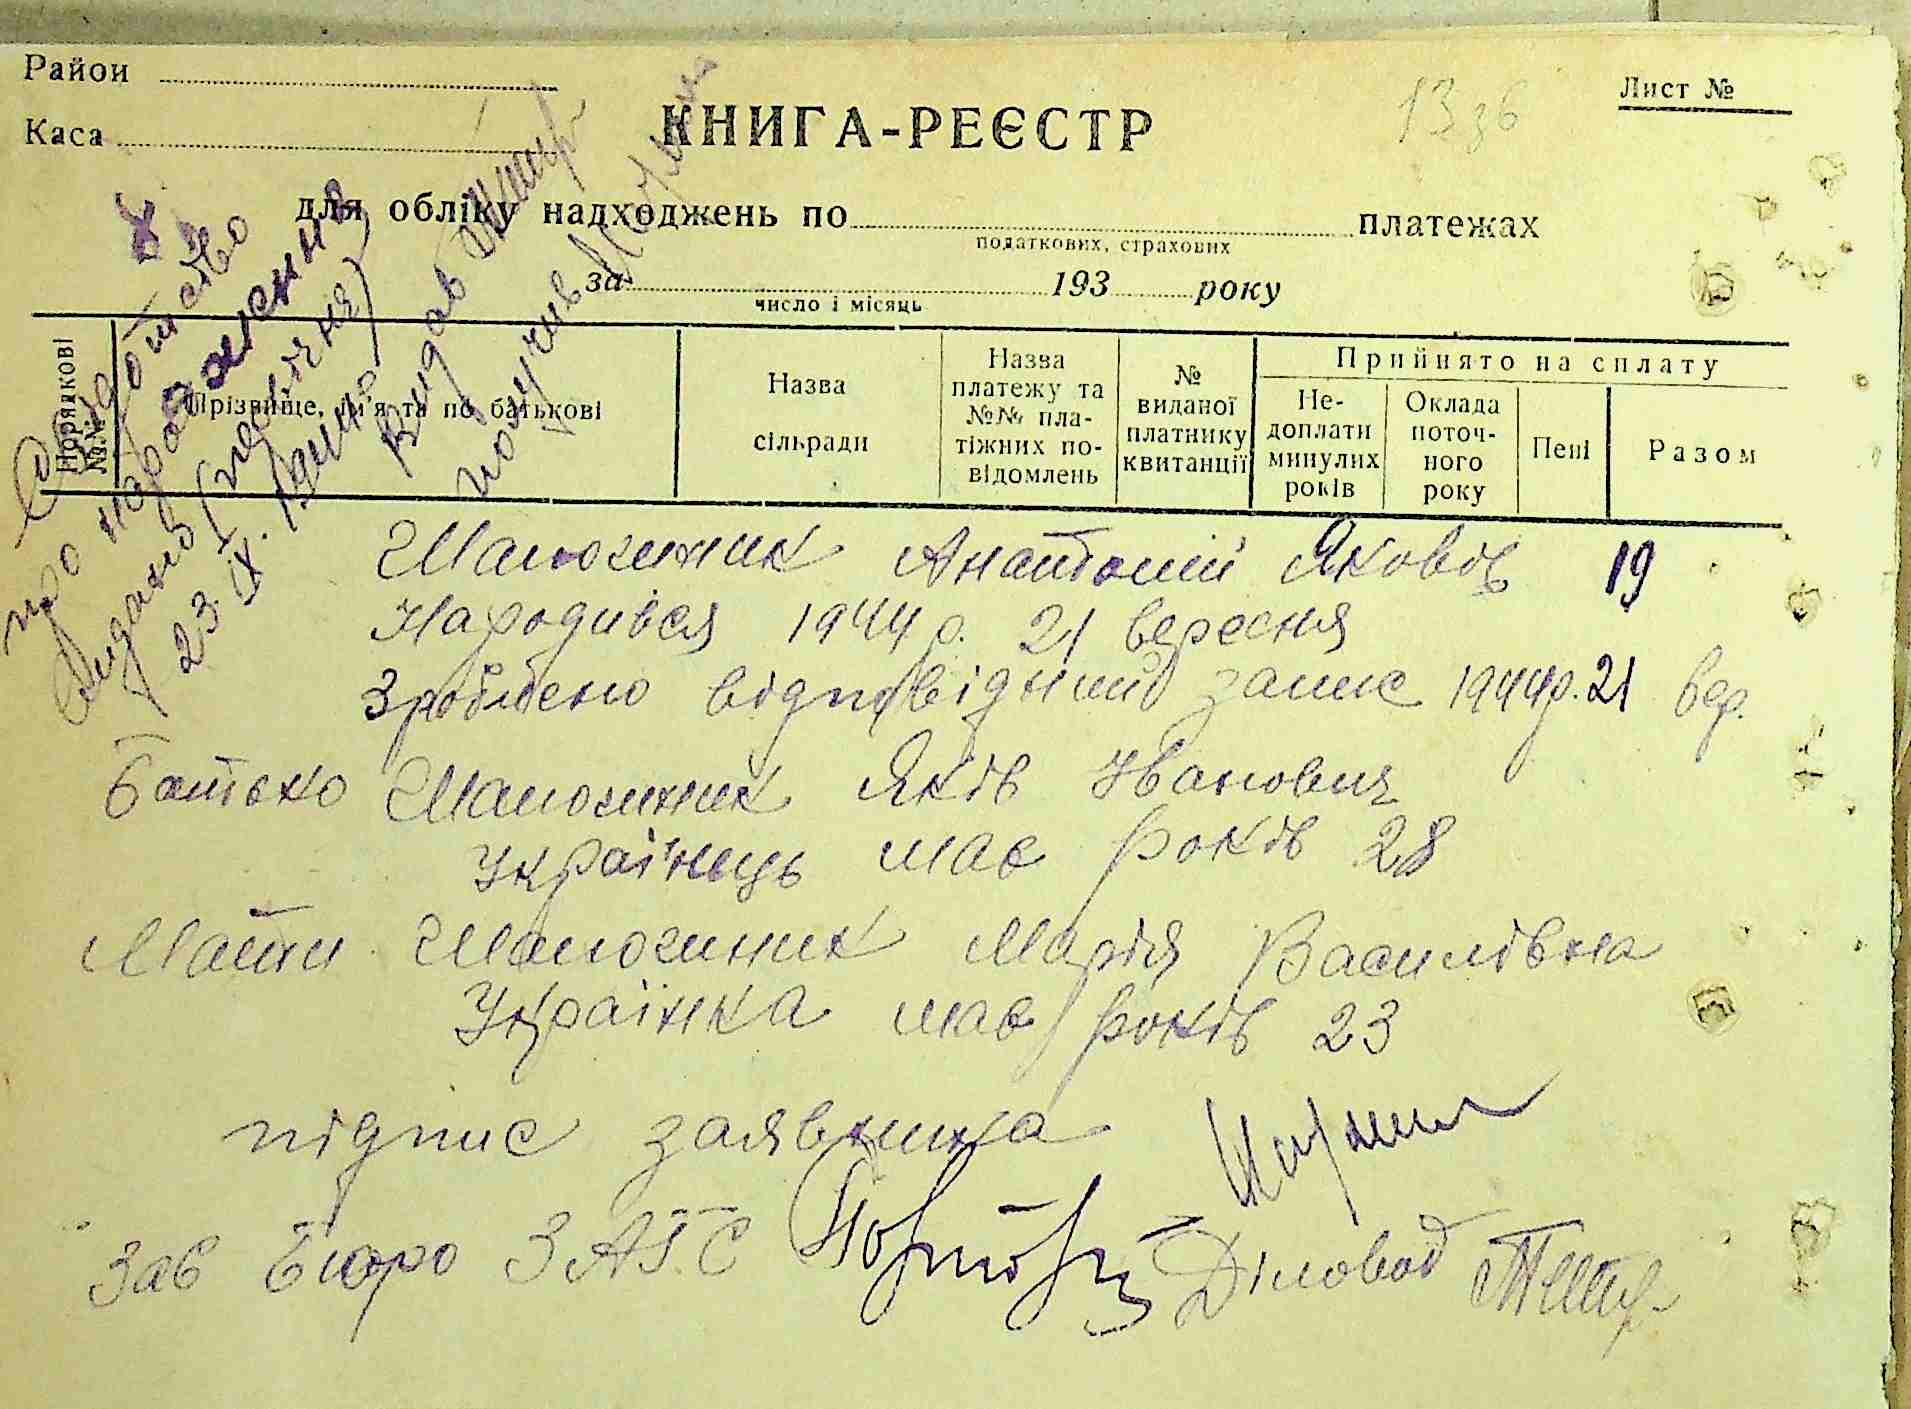 Район
Каса
КНИГА-РЕЄСТР
Лист №
13 зб
для обліку надходжень по платежах
податкових, страхових
за 193 року
число і місяць
Порядкові №№
Прізвище, ім'я та по батькові
Назва сільради
Назва платежу та №№ платіжних повідомлень
№ виданої платнику квитанції
Прийнято на сплату
Недоплати минулих років
Оклада поточного року
Пені
Разом
Свідоцтво
про народження
видано (повічня)
23. IX.
Видав
получив
Шапожник Анатолій Яковів 19
Народився 1944 р. 21 вересня
Зроблено відповідний запис 1944р. 21 вер.
Батько Шапожник Яків Іванович
Українець має років 28
Мати Шапожник Марія Василівна
Українка має років 23
підпис заявника
Зав Бюро ЗАГС Діловод